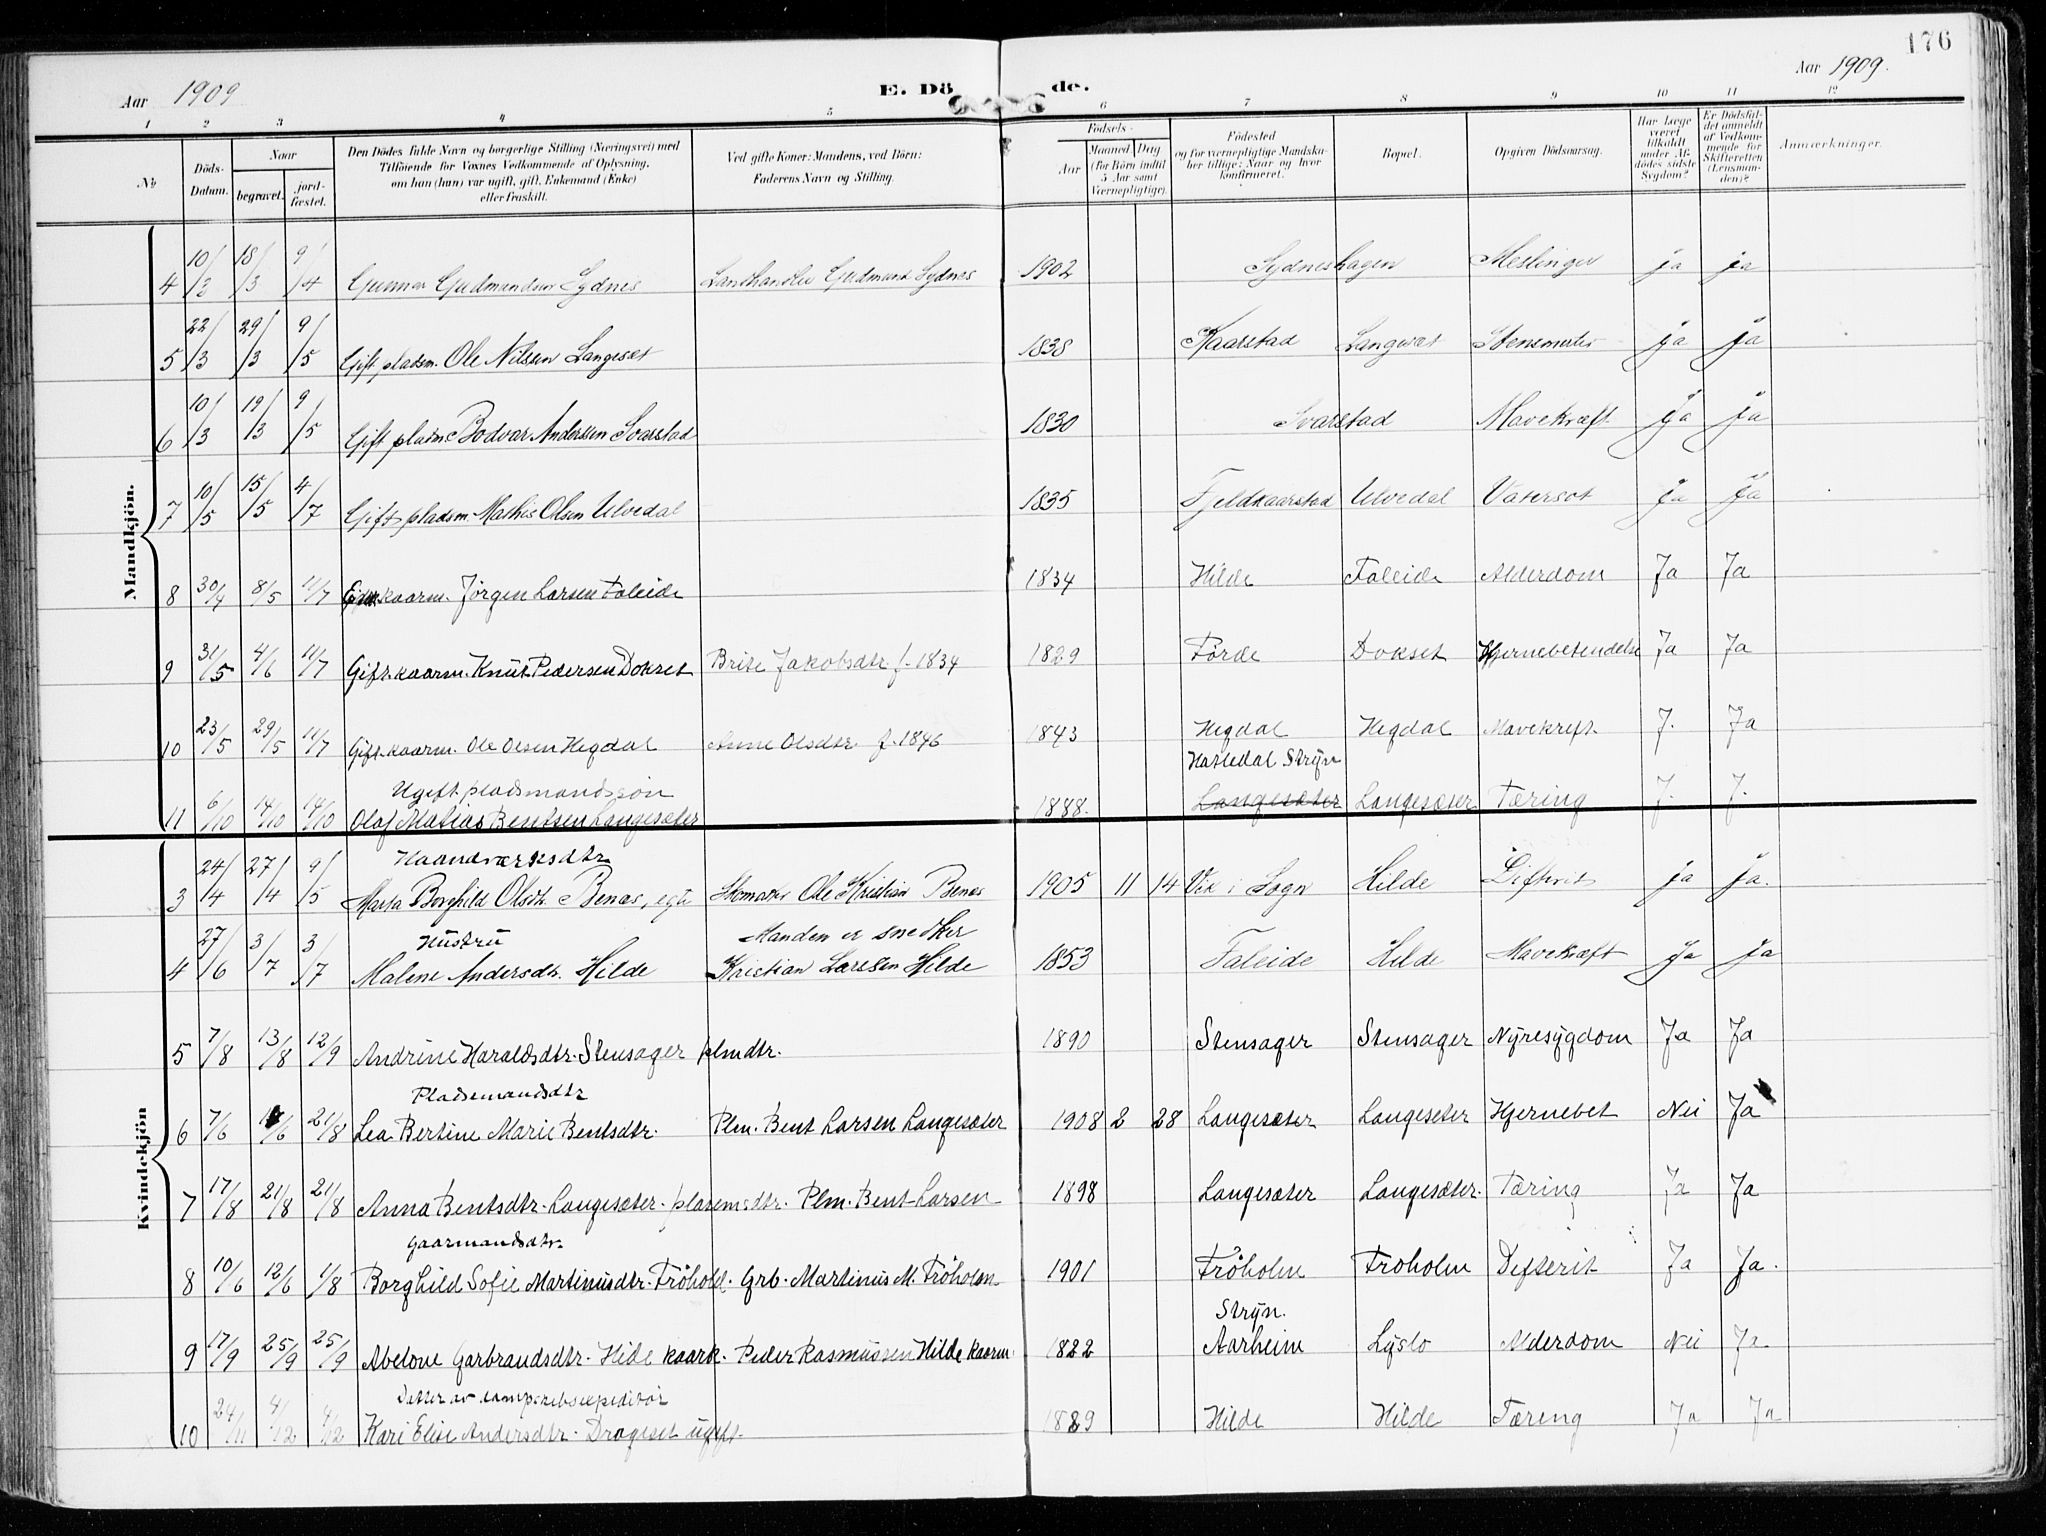 176
Aar 1909
E. Dö de.
Aar 1909.
1 2 3 4 5 6 7 8 9 10 11 12
No
Döds-Datum.
Naar
begravet.
jord-fæstet.
Den Dödes fulde Navn og borgerlige Stilling (Næringsvei) med
Tilföiende for Voxnes Vedkommende af Oplysning,
om han (hun) var ugift, gift, Enkemand (Enke)
eller fraskilt.
Ved gifte Koner: Mandens, ved Börn:
Faderens Navn og Stilling.
Födsels-
Aar
Maaned Dag
(for Börn indtil
5 Aar samt
Værnepligtige).
Födested
og for værnepligtige Mandska-
ber tillige: Naar og hvor
konfirmeret.
Bopæl.
Opgiven Dödsaarsag.
Har Læge
været
tilkaldt
under Af-
dödes sidste
Sygdom?
Er Dödsfal-
det anmeldt
af Vedkom-
mende for
Skifteretten
(Lensman-
den)?
Anmærkninger.
Mandkjön.
4 10/3 18/3 9/4 Gunnar Gudmundsen Sydnes Landhandler Gudmund Sydnes 1902 Sydneshagen Meslinger ja ja
5 22/3 29/3 9/5 Gift pladsm. Ole Nilssen Langeset 1838 Kaarstad Langeset Stensmerter ja ja
6 10/3 19/3 9/5 Gift pladsm Bodvar Anderssen Svarstad 1830 Svarstad Mavekræft ja ja
7 10/5 15/5 4/7 Gift pladsm. Mathis Olsen Ulvedal 1835 Fjeldkaarstad Ulvedal Vatersot ja ja
8 30/4 8/5 11/7 kaarm. Jørgen Larsen Faleide 1834 Hilde Faleide Alderdom Ja Ja
9 31/5 4/6 11/7 Gift. kaarm. Knut Pedersen Dokset Brite Jakobsdtr f. 1834 1829 Förde Dokset Hjernebetendelse Ja Ja
10 23/5 29/5 11/7 Gift. kaarm. Ole Olsen Hegdal Anne Olsdtr f. 1846 1843 Hegdal Hegdal Mavekreft. J. Ja
Ugift pladsmandssön Hatledal Stryn
11 6/10 14/10 14/10 Olaf Matias Bentsen Langesæter 1888. Langesæter Langesæter Tæring J. J.
Kvindekjön
Haandværksdtr
3 24/4 27/4 9/5 Marta Borghild Olsdtr Benæs, egte Skomaker Ole Kristian Benæs 1905 11 14 Vik i Sogn Hilde Difterit ja ja.
Hustru Manden er snedker
4 27/6 3/7 3/7 Malene Andersdtr. Hilde Kristian Larssen Hilde 1853 Faleide Hilde Mavekræft Ja Ja
5 7/8 13/8 12/9 Andrine Haraldsdtr. Stensager plmdtr. 1890 Stensager Stensager Nyresygdom Ja Ja
Pladsemandsdtr
6 7/6 /6 21/8 Lea Bertine Marie Bentsdtr. Plm. Bent Larsen Langesæter 1908 2 28 Langesæter Langeseter Hjernebet Nei Ja
7 17/8 21/8 21/8 Anna Bentsdtr. Langesæter. plasemsdtr. Plm. Bent Larsen 1898 Langesæter Langesæter. Tæring Ja Ja
Gaarmandsdtr.
8 10/6 12/6 1/8 Borghild Sofie Martinusdtr. Fröhold. Grb. Martinus M. Fröholm 1901 Fröholm Froholm Difterit Ja Ja.
Stryn.
9 17/9 25/9 25/9 Abelone Garbrandsdtr. Hide kaark. Peder Rasmussen Hilde kaarm. 1822 Aarheim Lyslo Alderdom Nei Ja
Datter av dampskibsexpeditör
10 24/11 4/12 4/12 Kari Elise Andersdtr. Drageset ugift. 1889 Hilde Hilde Tæring Ja Ja